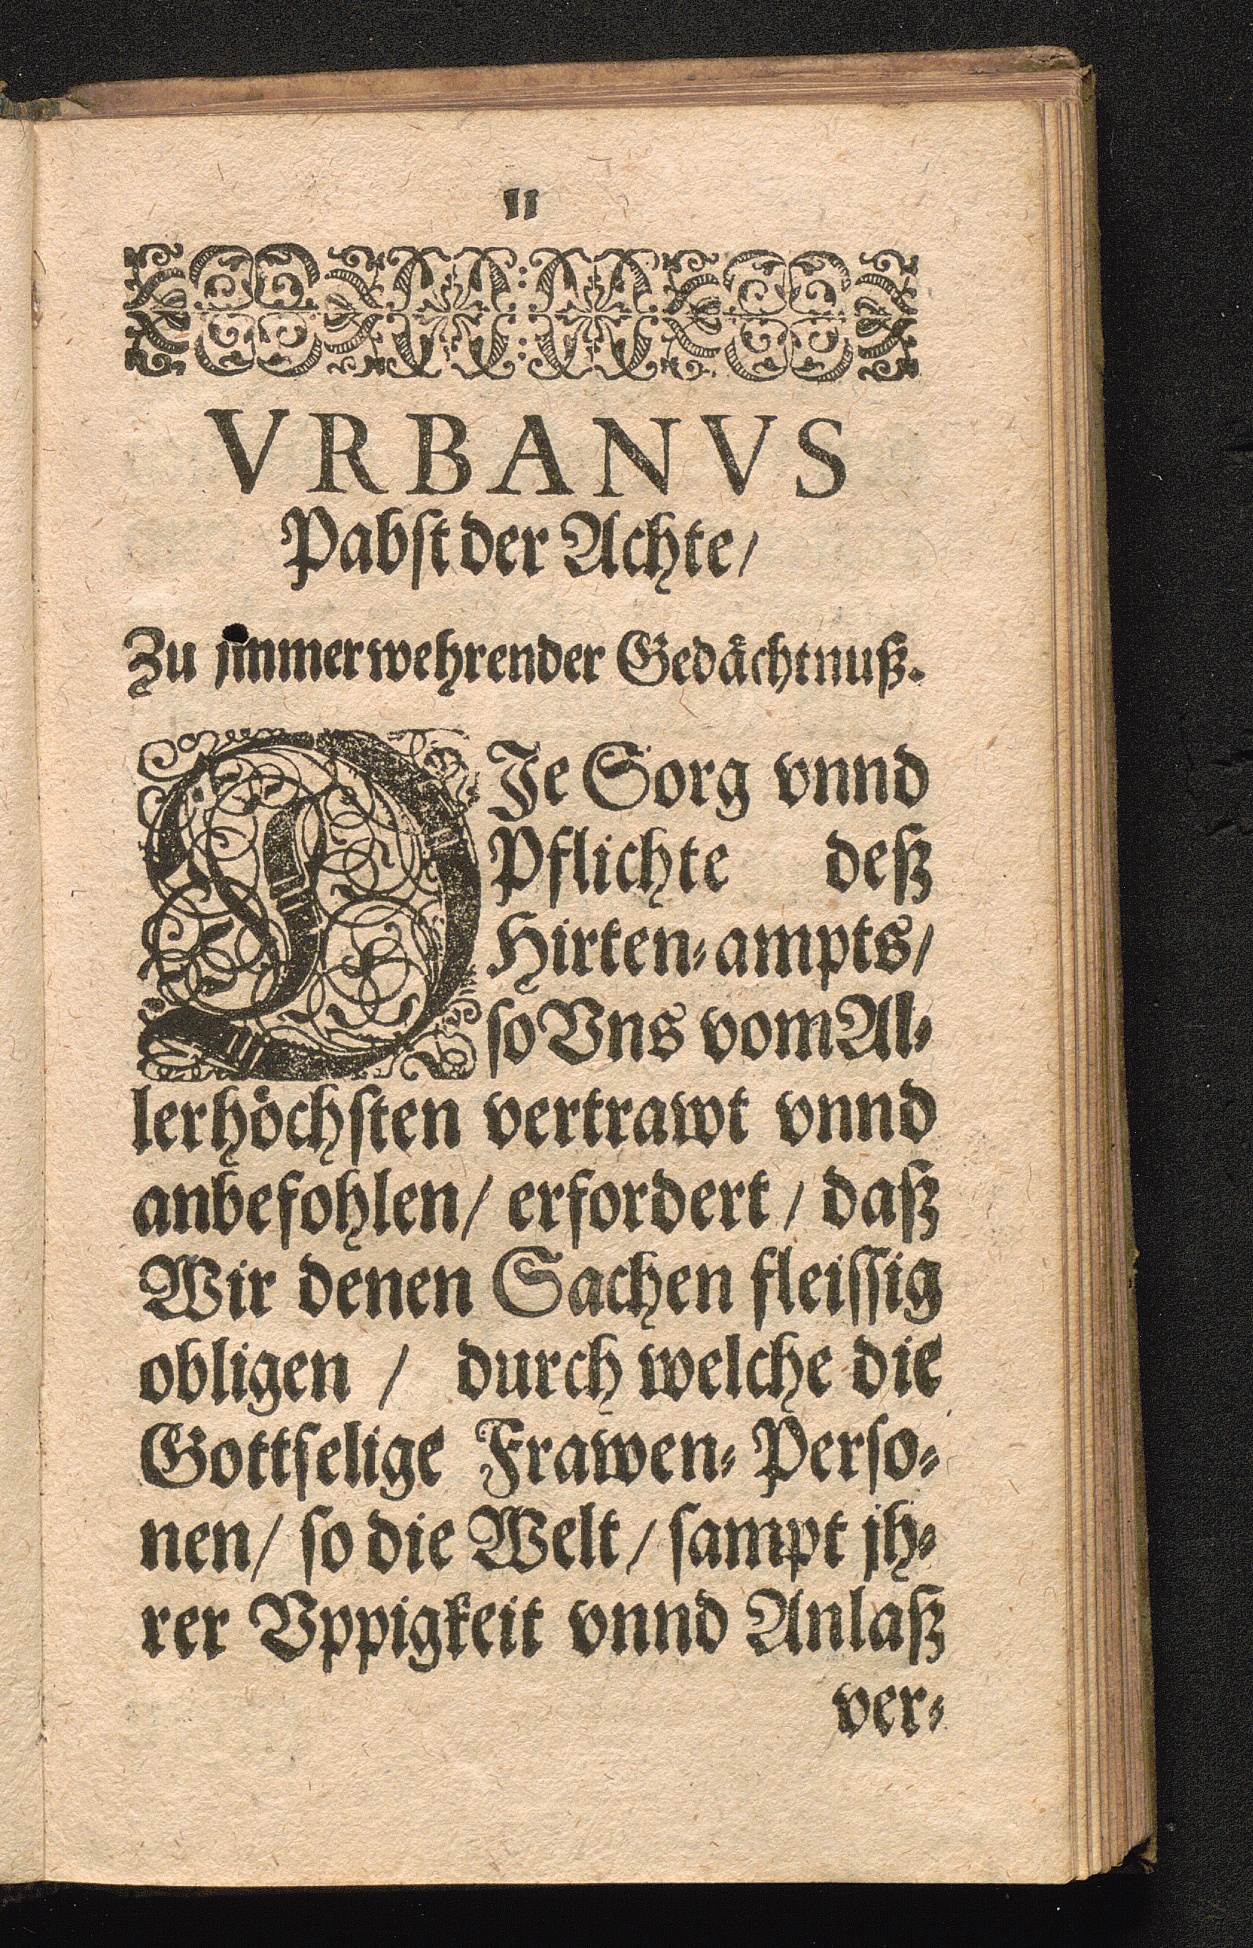 11
VRBANVS
Pabſt der Achte/
Zu jmmerwehrender Gedächtnuß.
DJe Sorg vnnd
Pflichte deß
Hirten-ampts/
ſo Vns vom Al-
lerhöchſten vertrawt vnnd
anbefohlen/ erfordert/ daß
Wir denen Sachen fleiſſig
obligen / durch welche die
Gottſelige Frawen-Perſo-
nen/ ſo die Welt/ ſampt jh-
rer Vppigkeit vnnd Anlaß
ver-